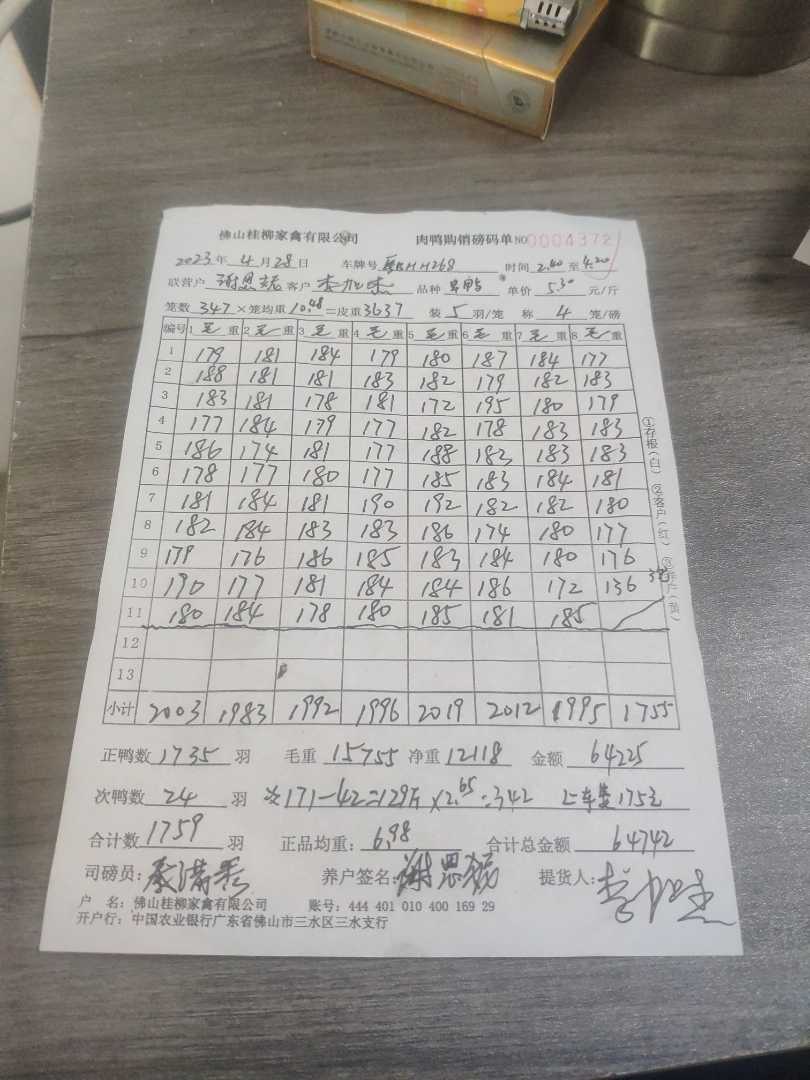 佛山桂柳家禽有限公司 肉鸭购销磅码单 NO 0004372
2023年 4月 28日 车牌号 HH268 时间 2.40 至 4.20
联营户 谢恩 客户 李 品种 单价 5.30 元/斤
笼数 347 × 笼均重 10.48 = 皮重 3637 装 5 羽/笼 称 4 笼/磅
编号 1 毛 重 2 毛 重 3 毛 重 4 毛 重 5 毛 重 6 毛 重 7 毛 重 8 毛 重
1 179 181 184 179 180 187 184 177
2 188 181 181 183 182 179 182 183
3 183 181 178 181 172 195 180 179
4 177 184 179 177 182 178 183 183
5 186 174 181 177 188 183 183 183
6 178 177 180 177 185 183 184 181
7 181 184 181 190 192 182 182 180
8 182 184 183 183 186 174 180 177
9 179 176 186 185 183 184 180 176
10 190 177 181 184 184 186 172 136 3笼
11 180 184 178 180 185 181 185
12
13
小计 2003 1983 1992 1996 2019 2012 1995 1755
①存根(白) ②客户(红) ③ 户(黄)
正鸭数 1735 羽 毛重 15755 净重 12118 金额 64225
次鸭数 24 羽 次171-42=129斤×2.65=342 上车费175元
合计数 1759 羽 正品均重: 6.98 合计总金额 64742
司磅员: 养户签名: 谢恩 提货人: 李
户 名: 佛山桂柳家禽有限公司 账号: 444 401 010 400 169 29
开户行: 中国农业银行广东省佛山市三水区三水支行